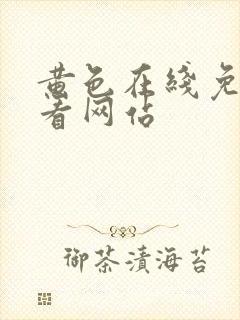 黄色在线免
看网站
御茶漬海苔